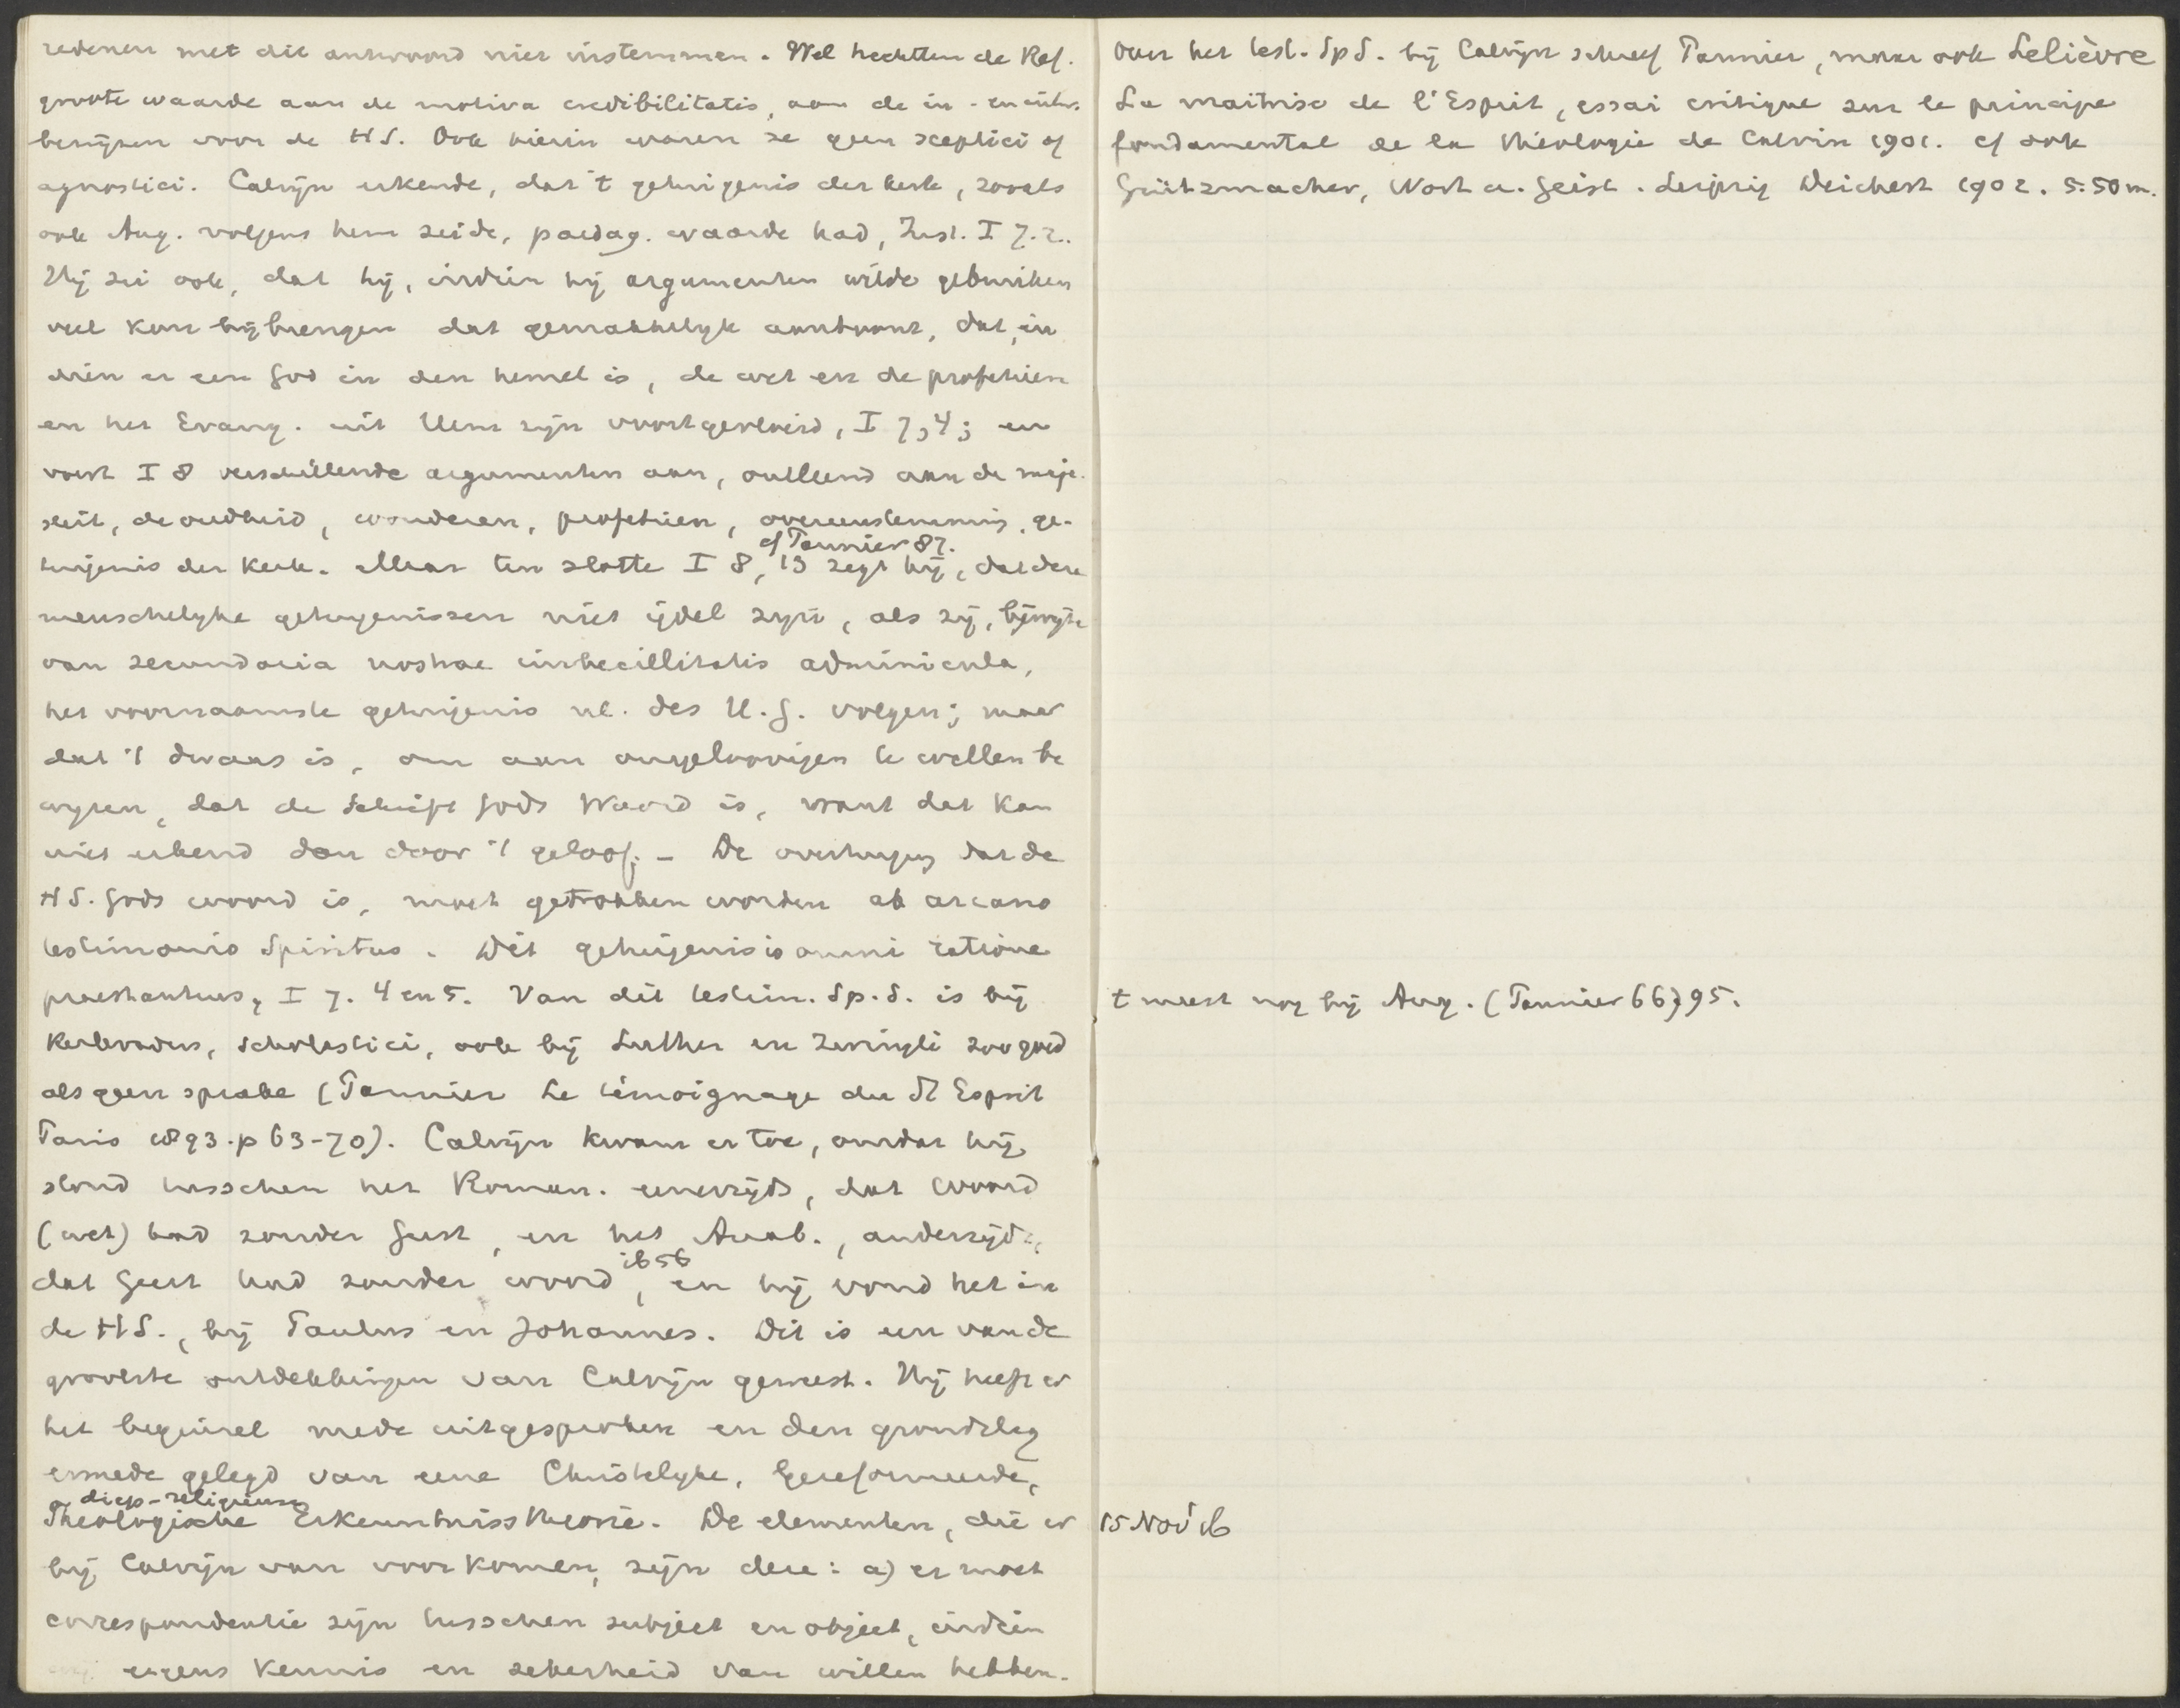 redenen met dit antwoord niet instemmen. Wel hechtten de Ref.
groote waarde aan de motiva credibilitatis, aan de in- en uitw.
bewijzen voor de HS. Ook hierin waren ze geen sceptici of
agnostici. Calvijn erkende, dat 't getuigenis der kerk, zooals
ook Aug. volgens hem zeide, paedag. waarde had, Inst. I 7.2..
Hij zei ook, dat hij, indien hij argumenten wilde gebruiken
veel kon bijbrengen dat gemakkelyk aantoont, dat, in
dien er een God in den hemel is, de wet en de profetieen
en het Evang. uit Hem zijn voortgevloeid, I 7,4; en
voert I 8 verschillende argumenten aan, ontleend aan de maje-
steit, de oudheid, wonderen, profetieen, overeenstemming, ge-
cf Pannier 87.
tuigenis der kerk. Maar ten slotte I 8, 13 zegt hij, dat deze
menschelyke getuigenissen niet ijdel zijn, als zij, bijwijze
van secundaria nostrae imbecillitatis adminicula,
het voornaamste getuigenis nl. des H.G. volgen; maar
dat 't dwaas is, om aan ongeloovigen te willen be
wyzen, dat de Schrift Gods Woord is, want dat kan
niet erkend dan door 't geloof. - De overtuiging dat de
HS. Gods woord is, moet getrokken worden ab arcano
testimonio Spiritus. Dit getuigenis is omni ratione
praestantius, I 7. 4 en 5. Van dit testim. Sp. S. is bij
Kerkvaders, scholastici, ook bij Luther en Zwingli zoo goed
als geen sprake (Pannier Le témoignage du St Esprit
Paris 1893. p 63-70). Calvijn kwam er toe, omdat hij
stond tusschen het Roman. eenerzijds, dat woord
(wet) had zonder Geest, en het Anab., anderzijds,
ib 56
dat Geest had zonder woord, en hij vond het in
de HS., bij Paulus en Johannes. Dit is een van de
grootste ontdekkingen van Calvijn geweest. Hij heeft er
het beginsel mede uitgesproken en den grondslag
ermede gelegd van eene Christelyke, Gereformeerde,
diep-religieuse
Theologische Erkenntnisstheorie. De elementen, die er
bij Calvijn van voorkomen, zijn deze: a) er moet
correspondentie zijn tusschen subject en object, indien
ergens kennis en zekerheid van willen hebben.
Over het test. Sp S. bij Calvijn schreef Pannier, maar ook Lelièvre
La maîtrise de l'Esprit, essai critique sur le principe
fondamental de la théologie de Calvin 1901. cf ook
Grützmacher, Wort u. Geist. Leipzig Deichert 1902. 5.50 m.
t meest nog bij Aug. (Pannier 66) 95.
15 Nov 16